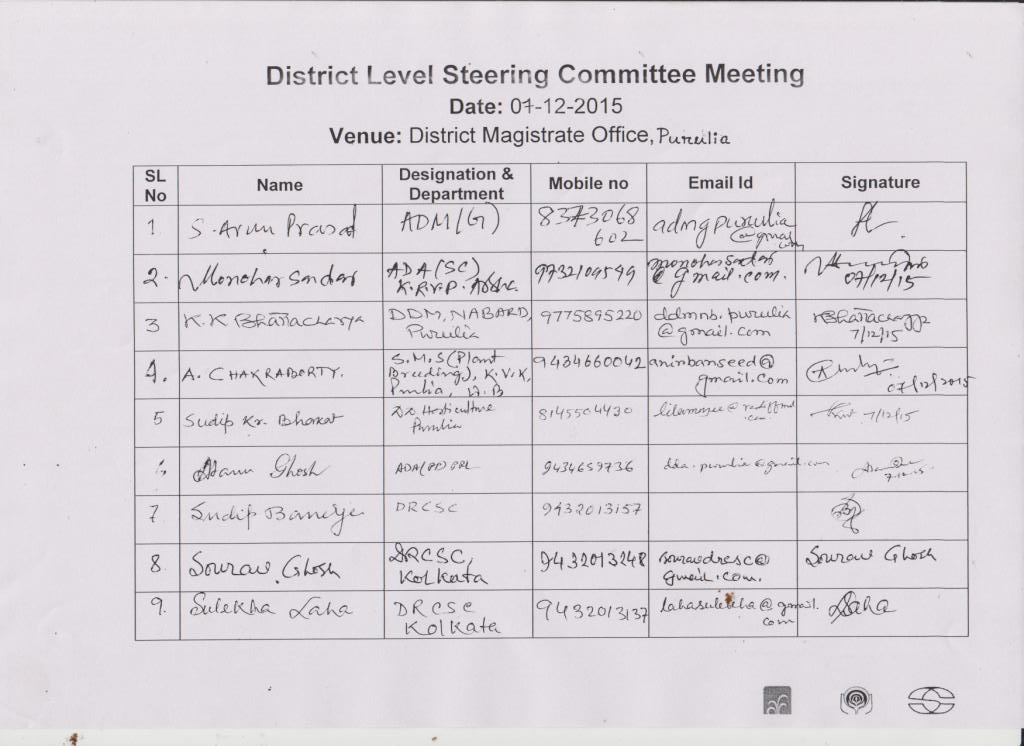 District Level Steering Committee Meeting
Date: 07-12-2015
Venue: District Magistrate Office, Purulia
SL No Name Designation & Department Mobile no Email Id Signature
1 S. Arun Prasad ADM(G) 8373068602 admgpurulia@gmail.com
2. Monohar Sardar ADA(SC) K.R.V.P. 9732109599 monoharsardar@gmail.com. 07/12/15
3 K.K Bhattacharya DDM, NABARD, Purulia 9775895220 ddmnb.purulia@gmail.com KBhattacharya 7/12/15
4. A. CHAKRABORTY. S.M.S (Plant Breeding), K.V.K, Purulia, W.B 9434660042 aninbanseed@gmail.com 07/12/2015
5 Sudip Kr. Bhakat DD Horticulture Purulia 8145504430 7/12/15
6. Ghosh ADA(PP) PRL 9434659736 dda.purulia@gmail.com 7.12.15
7 Sudip Banerjee DRCSC 9432013157
8. Sourav Ghosh DRCSC, Kolkata 9432013248 souravdrcsc@gmail.com. Sourav Ghosh
9. Sulekha Laha DRCSC Kolkata 9432013137 lahasulekha@gmail.com SLaha